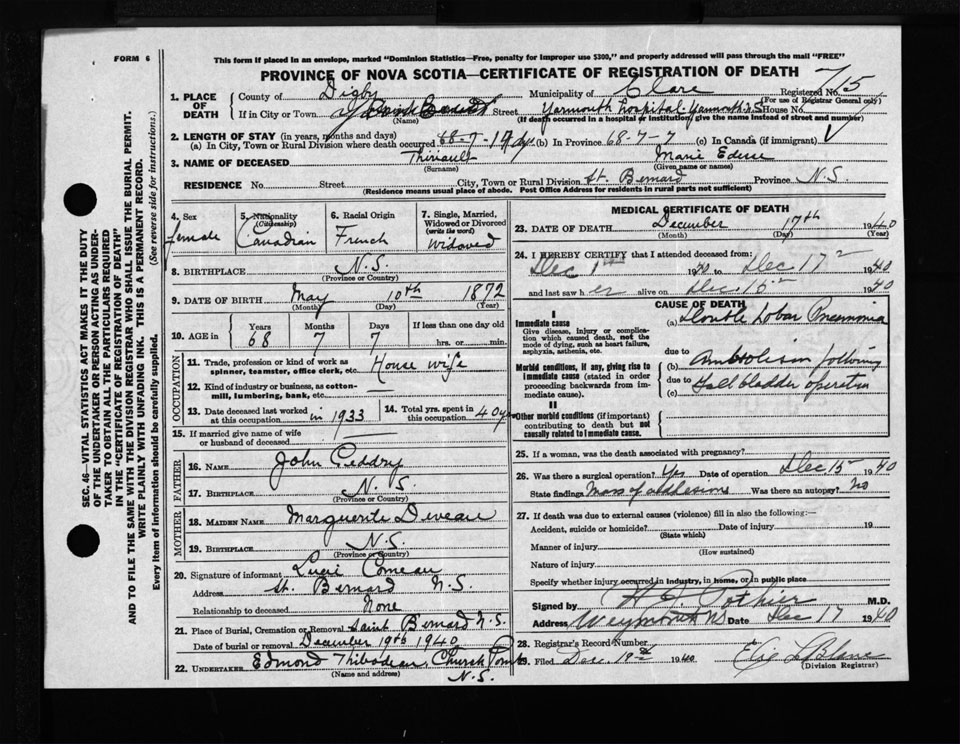 FORM 6
This form if placed in an envelope, marked "Dominion Statistics—Free, penalty for improper use $300," and properly addressed will pass through the mail "FREE"
PROVINCE OF NOVA SCOTIA—CERTIFICATE OF REGISTRATION OF DEATH
Registered No. 715
(For use of Registrar General only)
1. PLACE OF DEATH
County of Digby Municipality of Clare
If in City or Town Street Yarmouth Hospital Yarmouth N.S. House No.
(Name) (If death occurred in a hospital or institution, give the name instead of street and number)
2. LENGTH OF STAY (in years, months and days)
(a) In City, Town or Rural Division where death occurred 68-7- 17 dys (b) In Province 68-7-7 (c) In Canada (if immigrant)
3. NAME OF DECEASED Thiriault Marie
(Surname) (Given name or names)
RESIDENCE No. Street City, Town or Rural Division St. Bernard Province N.S.
(Residence means usual place of abode. Post Office Address for residents in rural parts not sufficient)
4. Sex female
5. Nationality (Citizenship) Canadian
6. Racial Origin French
7. Single, Married, Widowed or Divorced (write the word) Widowed
8. BIRTHPLACE N.S.
(Province or Country)
9. DATE OF BIRTH May 10th 1872
(Month) (Day) (Year)
10. AGE in Years Months Days If less than one day old
68 7 7 hrs. or min.
OCCUPATION
11. Trade, profession or kind of work as spinner, teamster, office clerk, etc. House wife
12. Kind of industry or business, as cotton-mill, lumbering, bank, etc.
13. Date deceased last worked at this occupation in 1933
14. Total yrs. spent in this occupation 40 yrs
15. If married give name of wife or husband of deceased
FATHER
16. NAME John
17. BIRTHPLACE N.S.
(Province or Country)
MOTHER
18. MAIDEN NAME Marguerite Deveau
19. BIRTHPLACE N.S.
(Province or Country)
20. Signature of informant Lucie Comeau
Address St. Bernard N.S.
Relationship to deceased None
21. Place of Burial, Cremation or Removal Saint Bernard N.S.
Date of burial or removal December 19th 1940
22. UNDERTAKER Edmond Thibodeau, Church Point
(Name and address) N.S.
MEDICAL CERTIFICATE OF DEATH
23. DATE OF DEATH December 17th 1940
(Month) (Day) (Year)
24. I HEREBY CERTIFY that I attended deceased from:
Dec 1st 1940 to Dec 17 1940
and last saw her alive on Dec 15 1940
CAUSE OF DEATH
I
Immediate cause
Give disease, injury or complication which caused death, not the mode of dying, such as heart failure, asphyxia, asthenia, etc.
(a) Double Lobar Pneumonia
due to
Morbid conditions, if any, giving rise to immediate cause (stated in order proceeding backwards from immediate cause).
(b) Ambolism following
due to
(c) Gall bladder operation
II
Other morbid conditions (if important) contributing to death but not causally related to immediate cause.
25. If a woman, was the death associated with pregnancy?
26. Was there a surgical operation? Yes Date of operation Dec 15 1940
State findings Mass of addhesions Was there an autopsy? No
27. If death was due to external causes (violence) fill in also the following:—
Accident, suicide or homicide? Date of injury 19
(State which)
Manner of injury
(How sustained)
Nature of injury
Specify whether injury occurred in industry, in home, or in public place
Signed by Pothier M.D.
Address Weymouth NS Date Dec 17 1940
28. Registrar's Record Number
29. Filed Dec. 19th 1940
(Division Registrar)
SEC. 46—VITAL STATISTICS ACT MAKES IT THE DUTY
OF THE UNDERTAKER OR PERSON ACTING AS UNDER-
TAKER TO OBTAIN ALL THE PARTICULARS REQUIRED
IN THE "CERTIFICATE OF REGISTRATION OF DEATH"
AND TO FILE THE SAME WITH THE DIVISION REGISTRAR WHO SHALL ISSUE THE BURIAL PERMIT.
WRITE PLAINLY WITH UNFADING INK. THIS IS A PERMANENT RECORD.
Every item of information should be carefully supplied. (See reverse side for instructions.)